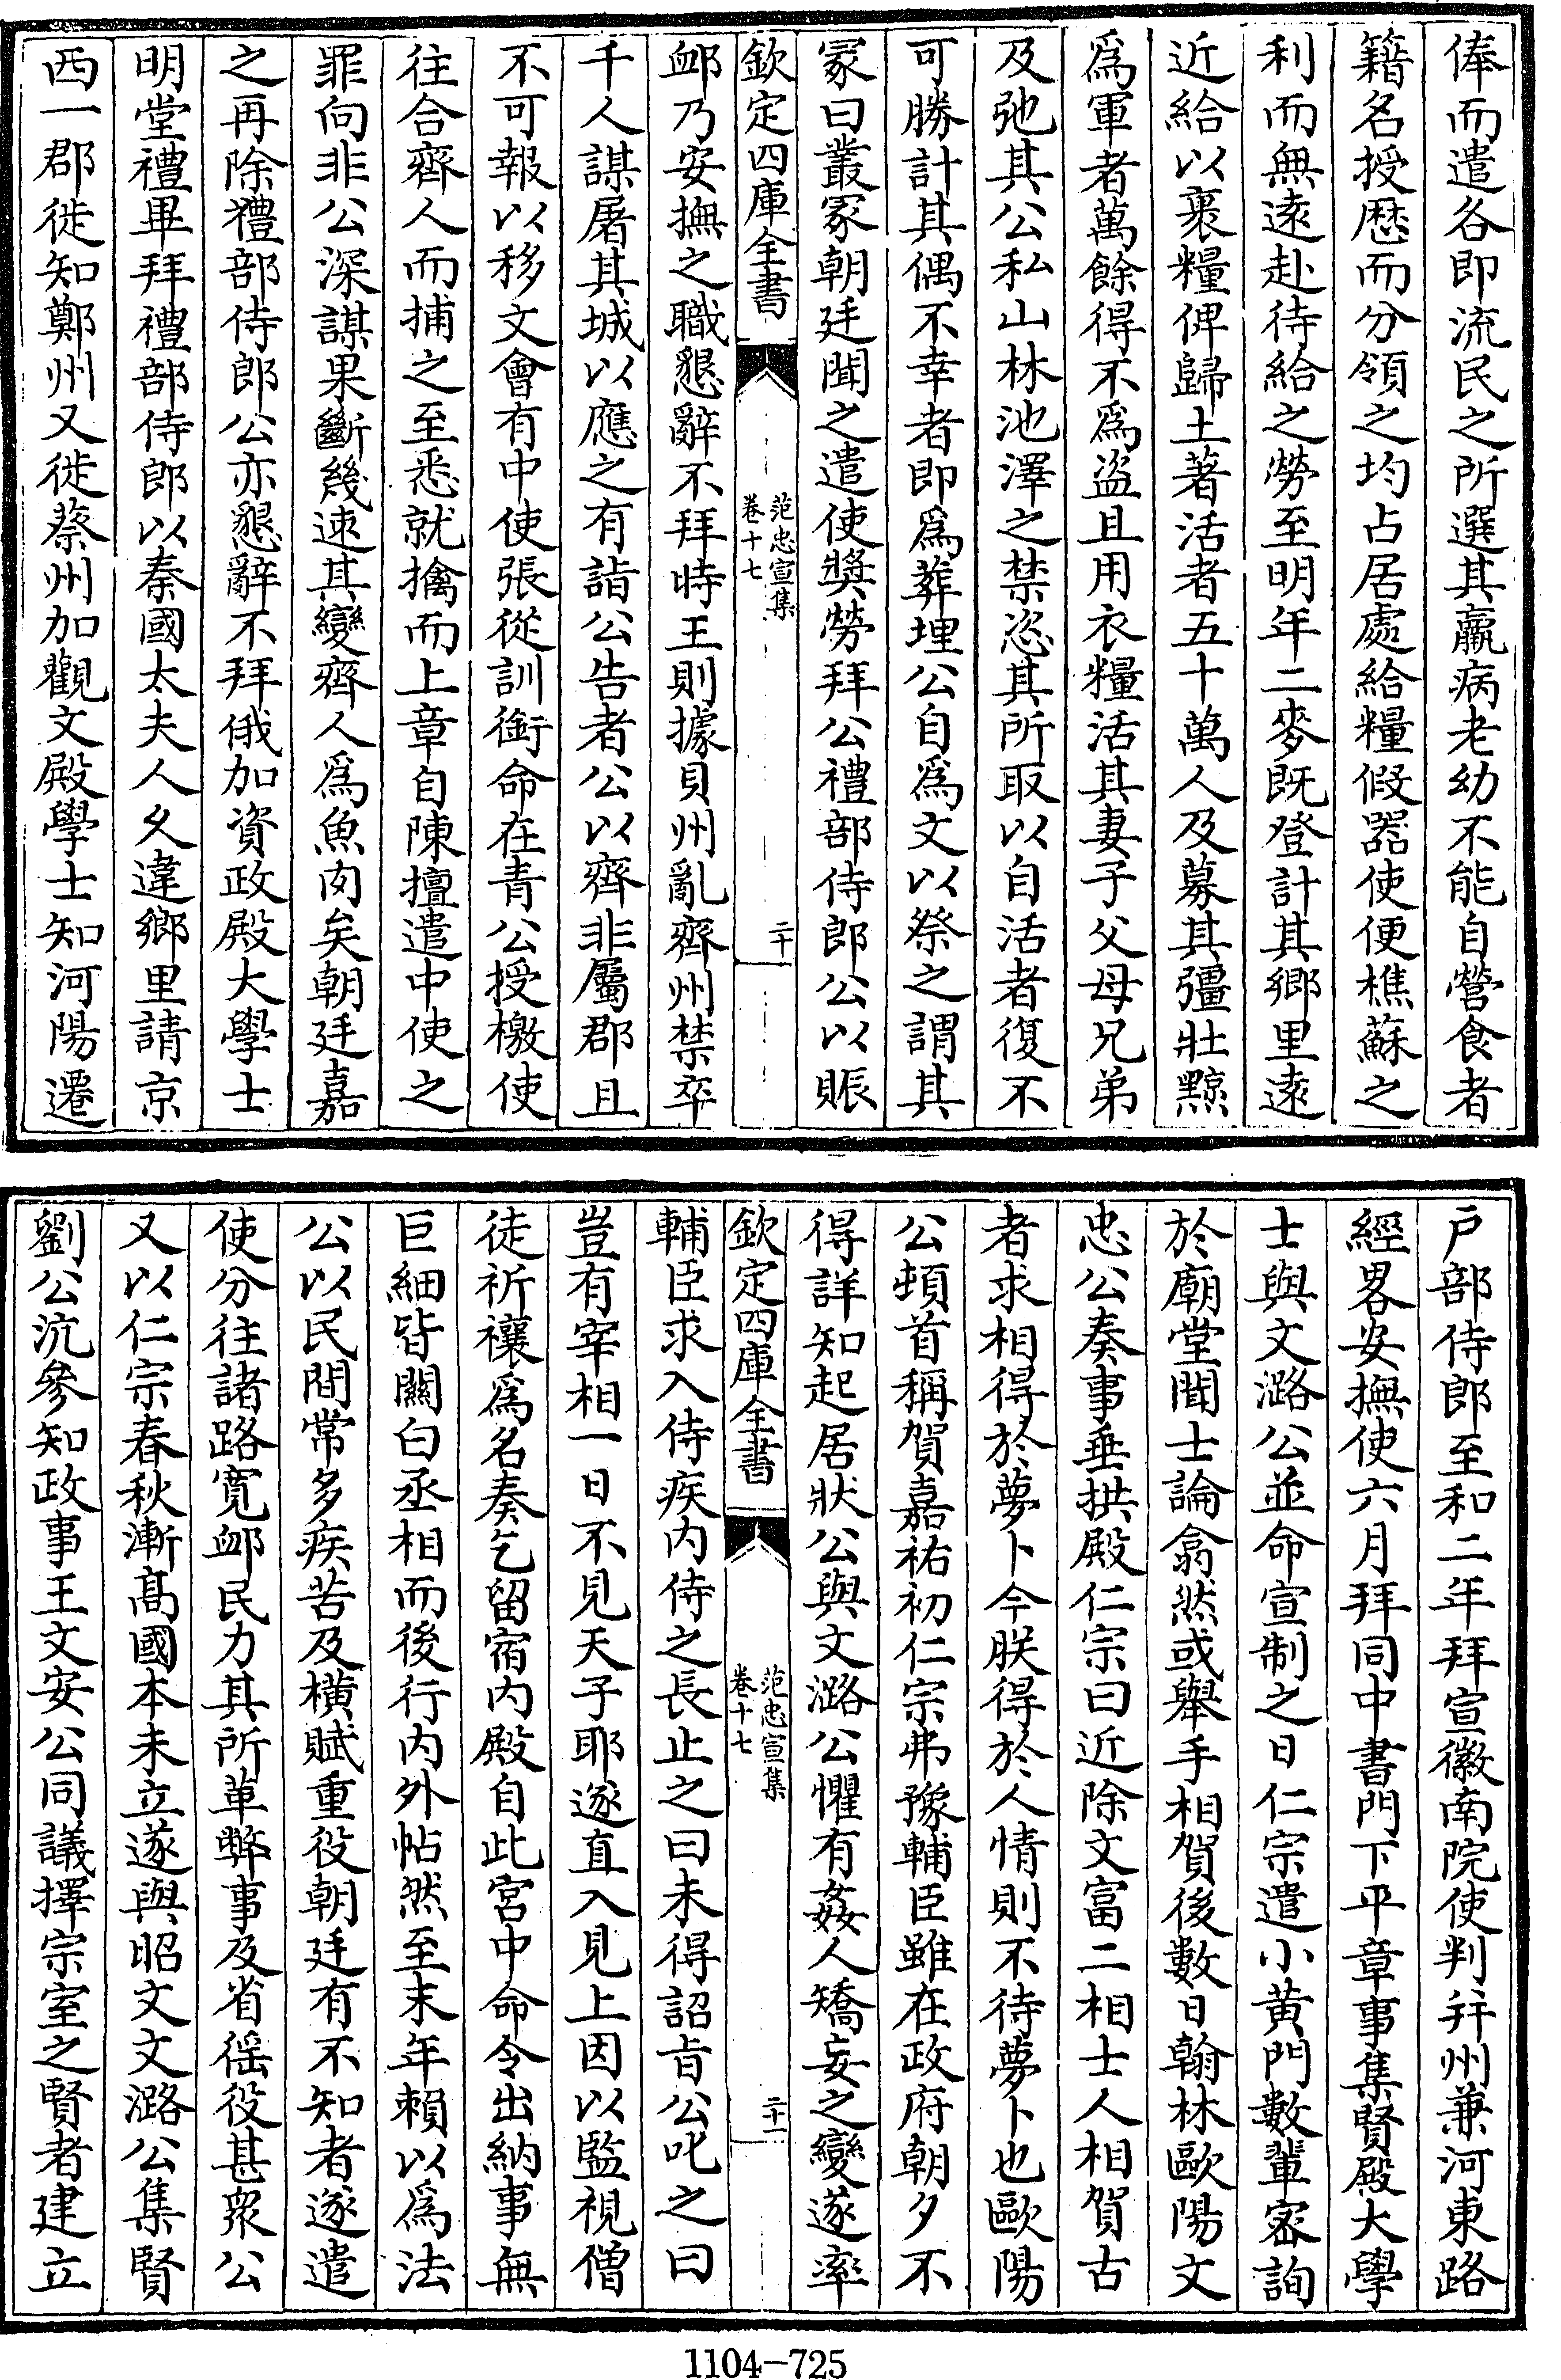 俸而遣各即流民之所選其羸病老幼不能自營食者
籍名授歴而分領之均占居處給糧假器使便樵蘇之
利而無遠赴待給之勞至明年二麥既登計其鄉里遠
近給以裹糧俾歸土著活者五十萬人及募其彊壯黥
爲軍者萬餘得不爲盜且用衣糧活其妻子父母兄弟
及弛其公私山林池澤之禁恣其所取以自活者復不
可勝計其偶不幸者即爲葬埋公自爲文以祭之謂其
冢曰叢冢朝廷聞之遣使奬勞拜公禮部侍郎公以賑
欽定四庫全書
范忠宣集
卷十七
二十
䘏乃安撫之職懇辭不拜時王則據貝州亂齊州禁卒
千人謀屠其城以應之有詣公告者公以齊非屬郡且
不可報以移文會有中使張從訓銜命在青公授檄使
往合齊人而捕之至悉就擒而上章自陳擅遣中使之
罪向非公深謀果斷幾速其變齊人爲魚肉矣朝廷嘉
之再除禮部侍郎公亦懇辭不拜俄加資政殿大學士
明堂禮畢拜禮部侍郎以秦國太夫人久違鄉里請京
西一郡徙知鄭州又徙蔡州加觀文殿學士知河陽遷
户部侍郎至和二年拜宣徽南院使判并州兼河東路
經畧安撫使六月拜同中書門下平章事集賢殿大學
士與文潞公並命宣制之日仁宗遣小黄門數輩宻詢
於廟堂聞士論翕然或舉手相賀後數日翰林歐陽文
忠公奏事垂拱殿仁宗曰近除文富二相士人相賀古
者求相得於夢卜今朕得於人情則不待夢卜也歐陽
公頓首稱賀嘉祐初仁宗弗豫輔臣雖在政府朝夕不
得詳知起居狀公與文潞公懼有姦人矯妄之變遂率
欽定四庫全書
范忠宣集
卷十七
二十一
輔臣求入侍疾内侍之長止之曰未得詔旨公叱之曰
豈有宰相一日不見天子耶遂直入見上因以監視僧
徒祈禳爲名奏乞留宿内殿自此宮中命令出納事無
巨細皆關白丞相而後行内外帖然至末年賴以爲法
公以民間常多疾苦及横賦重役朝廷有不知者遂遣
使分往諸路寛䘏民力其所革弊事及省徭役甚衆公
又以仁宗春秋漸髙國本未立遂與昭文文潞公集賢
劉公沆參知政事王文安公同議擇宗室之賢者建立
1104-725